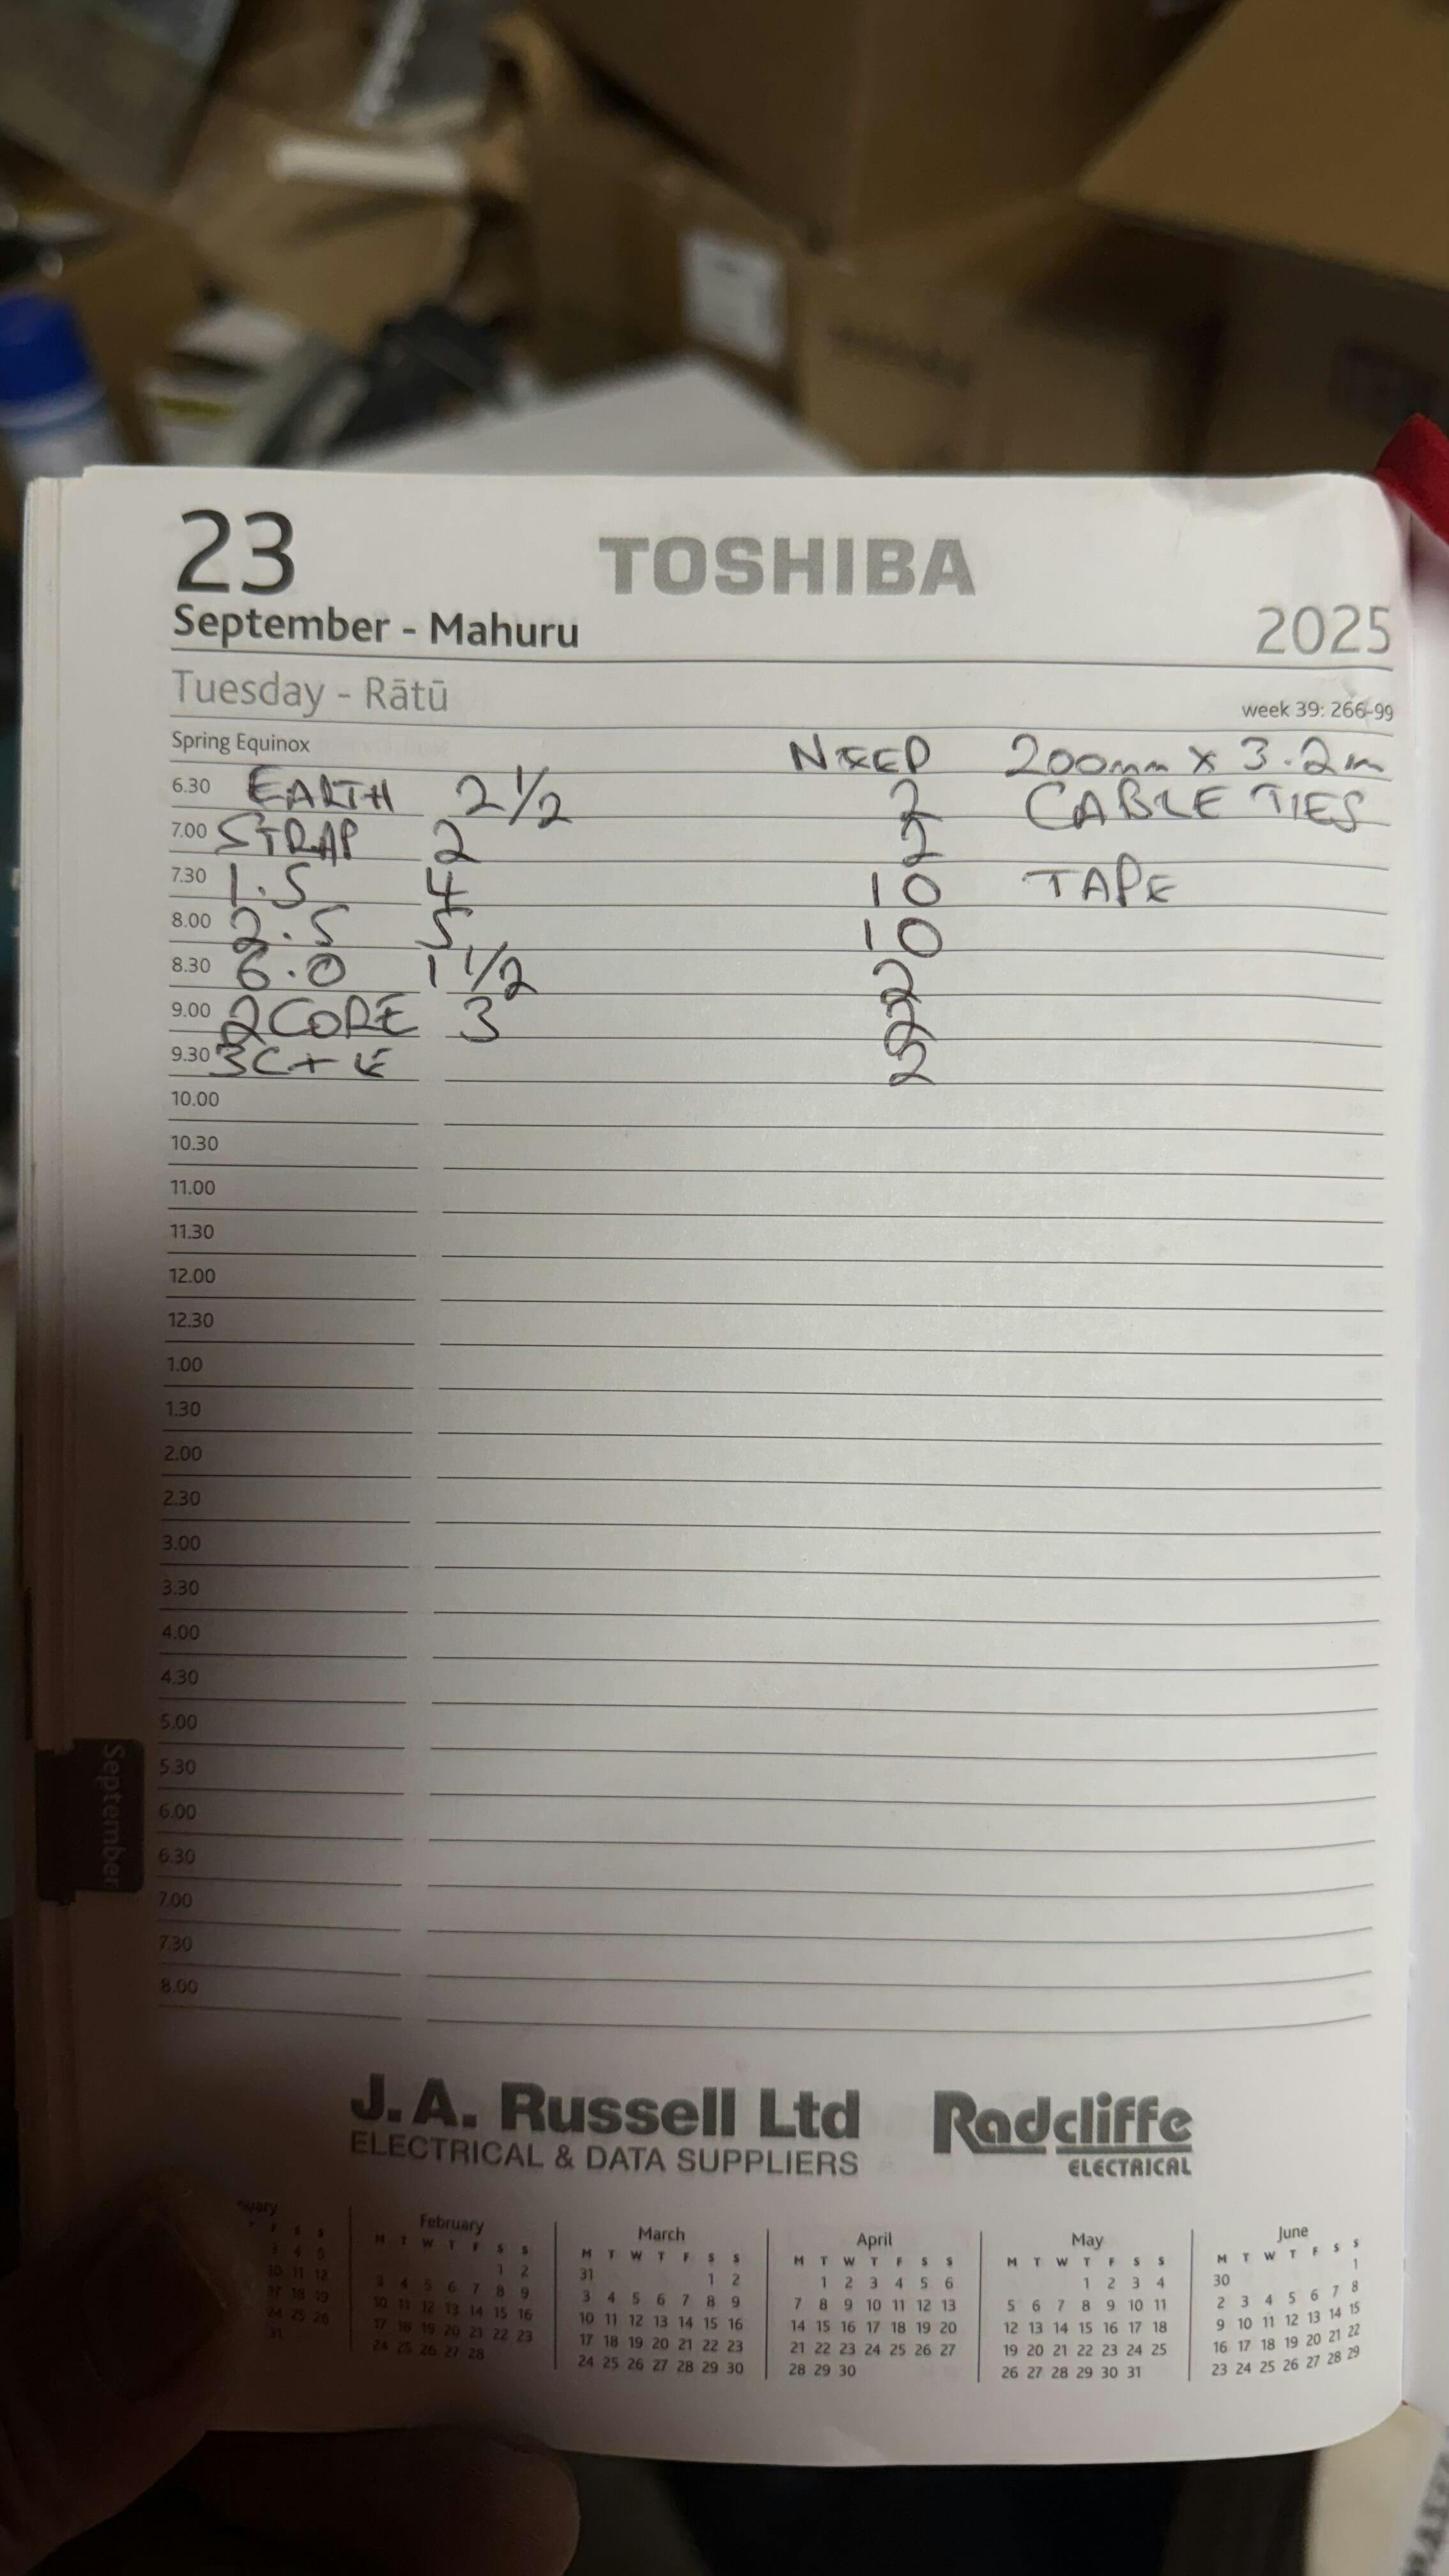 23 TOSHIBA
September - Mahuru 2025
Tuesday - Rātū week 39: 266-99
Spring Equinox NEED 200mm x 3.2m
6.30 EARTH 2 1/2 2 CABLE TIES
7.00 STRAP 2 2
7.30 1.5 4 10 TAPE
8.00 2.5 5 10
8.30 6.0 1 1/2 2
9.00 2CORE 3 2
9.30 3C+E 2
10.00
10.30
11.00
11.30
12.00
12.30
1.00
1.30
2.00
2.30
3.00
3.30
4.00
4.30
5.00
5.30
6.00
6.30
7.00
7.30
8.00
September
J.A. Russell Ltd Radcliffe
ELECTRICAL & DATA SUPPLIERS ELECTRICAL
February March April May June
M T W T F S S M T W T F S S M T W T F S S M T W T F S S M T W T F S S
1 2 31 1 2 1 2 3 4 5 6 1 2 3 4 30 1
3 4 5 6 7 8 9 3 4 5 6 7 8 9 7 8 9 10 11 12 13 5 6 7 8 9 10 11 2 3 4 5 6 7 8
10 11 12 13 14 15 16 10 11 12 13 14 15 16 14 15 16 17 18 19 20 12 13 14 15 16 17 18 9 10 11 12 13 14 15
17 18 19 20 21 22 23 17 18 19 20 21 22 23 21 22 23 24 25 26 27 19 20 21 22 23 24 25 16 17 18 19 20 21 22
24 25 26 27 28 24 25 26 27 28 29 30 28 29 30 26 27 28 29 30 31 23 24 25 26 27 28 29